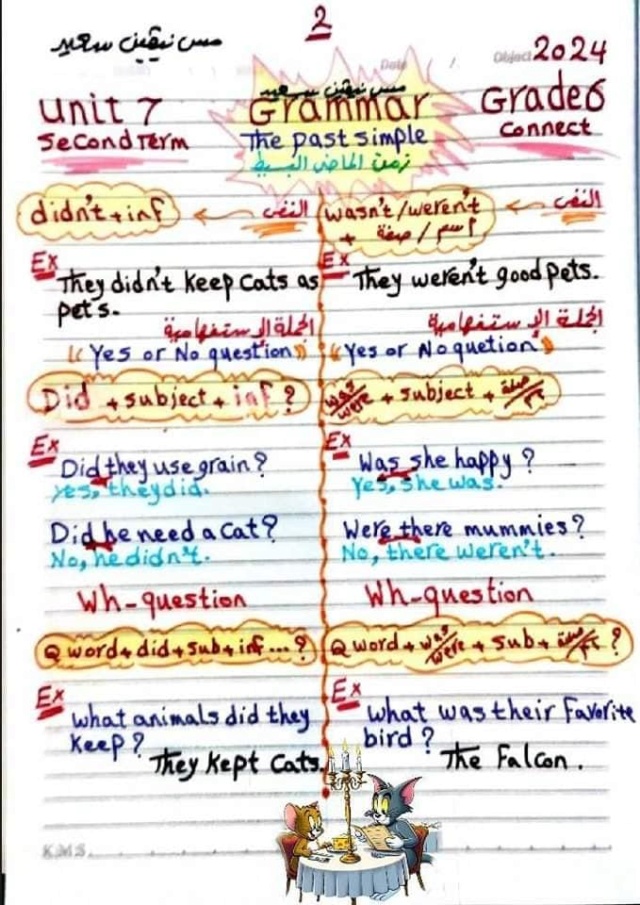 2
مس نيڤين سعيد
Date / /.
Object: 2024
مس نيڤين سعيد
Unit 7
Second Term
Grammar
The past simple
زمن الماضى البسيط
Grade 6
Connect
didn't + inf ← النفى
Ex They didn't keep cats as
pet's.
الجملة الإستفهامية
(( Yes or No question ))
Did + subject + inf ?
Ex
Did they use grain?
Yes, they did.
Did he need a cat?
No, he didn't.
Wh-question
Q word + did + sub + inf ... ?
Ex
what animals did they
keep?
They kept cats.
wasn't/weren't ← النفى
+ صفة / اسم
Ex They weren't good pets.
الجملة الإستفهامية
(( Yes or No quetion ))
was/were + subject + صفة/اسم
Ex
Was she happy ?
Yes, she was.
Were there mummies?
No, there weren't.
Wh-question
Q word + was/were + sub + صفة/اسم ?
Ex
what was their Favorite
bird ?
The Falcon.
K.M.S.